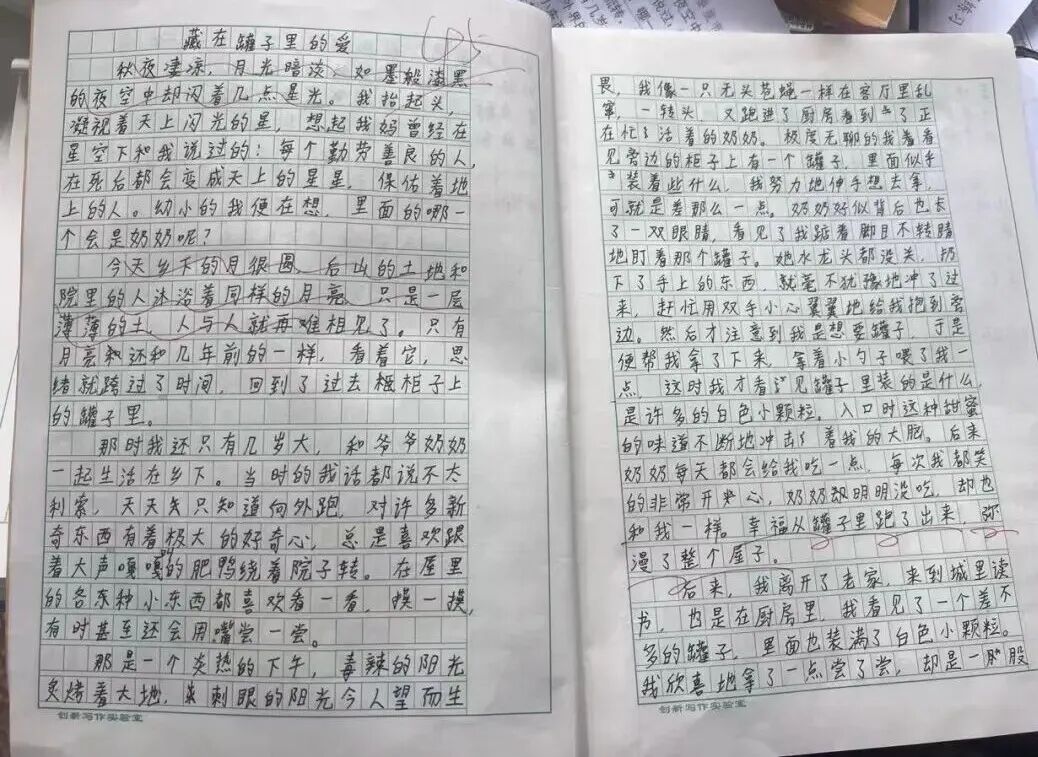 藏在罐子里的爱
秋夜凄凉，月光暗淡，如墨般漆黑
的夜空中却闪着几点星光。我抬起头，
凝视着天上闪光的星，想起我妈曾经在
星空下和我说过的：每个勤劳善良的人，
在死后都会变成天上的星星，保佑着地
上的人。幼小的我便在想，里面的哪一
个会是奶奶呢？
今天乡下的月很圆，后山的土地和
院里的人沐浴着同样的月亮，只是一层
薄薄的土，人与人就再难相见了。只有
月亮和还和几年前的一样，看着它，思
绪就跨过了时间，回到了过去柜子上
的罐子里。
那时我还只有几岁大，和爷爷奶奶
一起生活在乡下。当时的我话都说不太
利索，天天只知道向外跑，对许多新
奇东西有着极大的好奇心，总是喜欢跟
着大声嘎嘎的肥鸭绕着院子转。在屋里
的各种小东西都喜欢看一看，摸一摸，
有时甚至还会用嘴尝一尝。
那是一个炎热的下午，毒辣的阳光
炙烤着大地，刺眼的阳光令人望而生
创新写作实验室
畏，我像一只无头苍蝇一样在客厅里乱
窜，一转头，又跑进了厨房看到了正
在忙活着的奶奶。极度无聊的我看
见旁边的柜子上有一个罐子，里面似乎
装着些什么，我努力地伸手想去拿，
可就是差那么一点。奶奶好似背后也长
了一双眼睛，看见了我踮着脚目不转睛
地盯着那个罐子。她水龙头都没关，扔
下了手上的东西，就毫不犹豫地冲了过
来，赶忙用双手小心翼翼地给我抱到旁
边。然后才注意到我是想要罐子，于是
便帮我拿了下来，拿着小勺子喂了我一
点，这时我才看见罐子里装的是什么，
是许多的白色小颗粒。入口时这种甜蜜
的味道不断地冲击着我的大脑。后来
奶奶每天都会给我吃一点，每次我都笑
的非常开心，奶奶明明没吃，却也
和我一样。幸福从罐子里跑了出来，弥
漫了整个屋子。
后来，我离开了老家，来到城里读
书，也是在厨房里，我看见了一个差不
多的罐子，里面也装满了白色小颗粒。
我欣喜地拿了一点尝了尝，却是一股
创新写作实验室